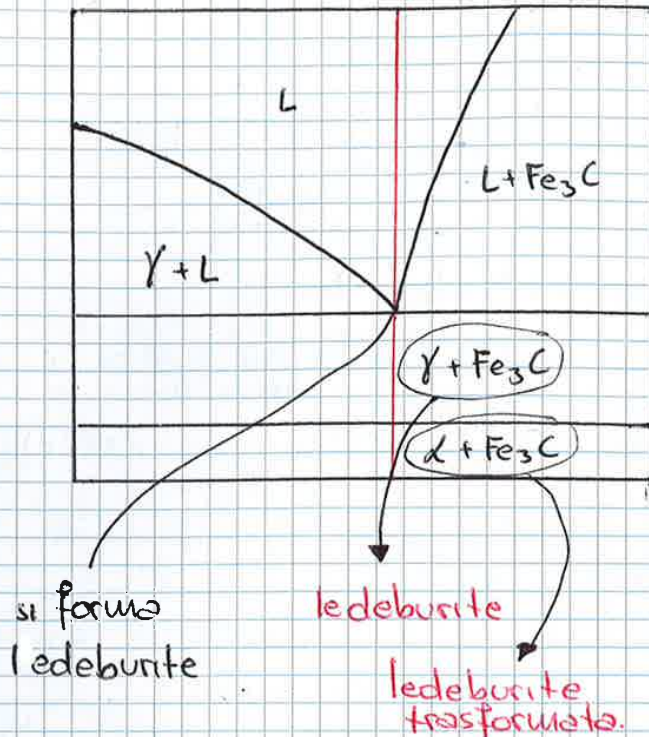 L
L + Fe₃C
γ + L
γ + Fe₃C
α + Fe₃C
si forma
ledeburite
ledeburite
ledeburite
trasformata.